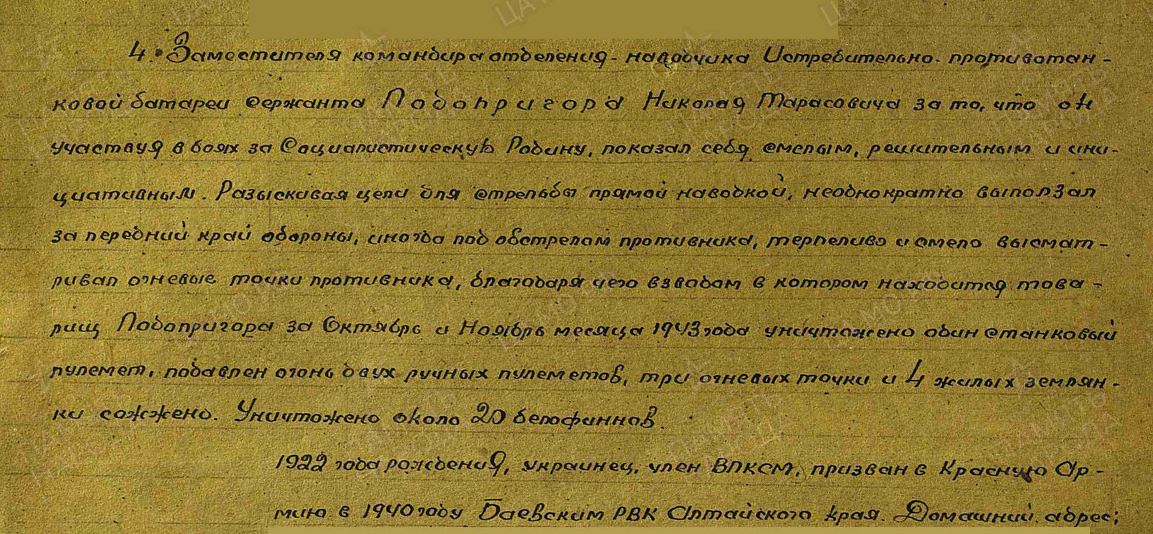 4. Заместителя командира отделения - наводчика Истребительно - противотан-
ковой батареи сержанта Подопригора Николая Тарасовича за то, что он
участвуя в боях за Социалистическую Родину, показал себя смелым, решительным и ини-
циативным. Разыскивая цели для стрельбы прямой наводкой, неоднократно выползал
за передний край обороны, иногда под обстрелом противника, терпеливо и смело высмат-
ривал огневые точки противника, благодаря чего взводом в котором находится това-
рищ Подопригора за Октябрь и Ноябрь месяца 1943 года уничтожено один станковый
пулемет, подавлен огонь двух ручных пулеметов, три огневых точки и 4 жилых землян-
ки сожжено. Уничтожено около 20 белофиннов.
1922 года рождения, украинец, член ВЛКСМ, призван в Красную Ар-
мию в 1940 году Баевским РВК Алтайского края. Домашний адрес;